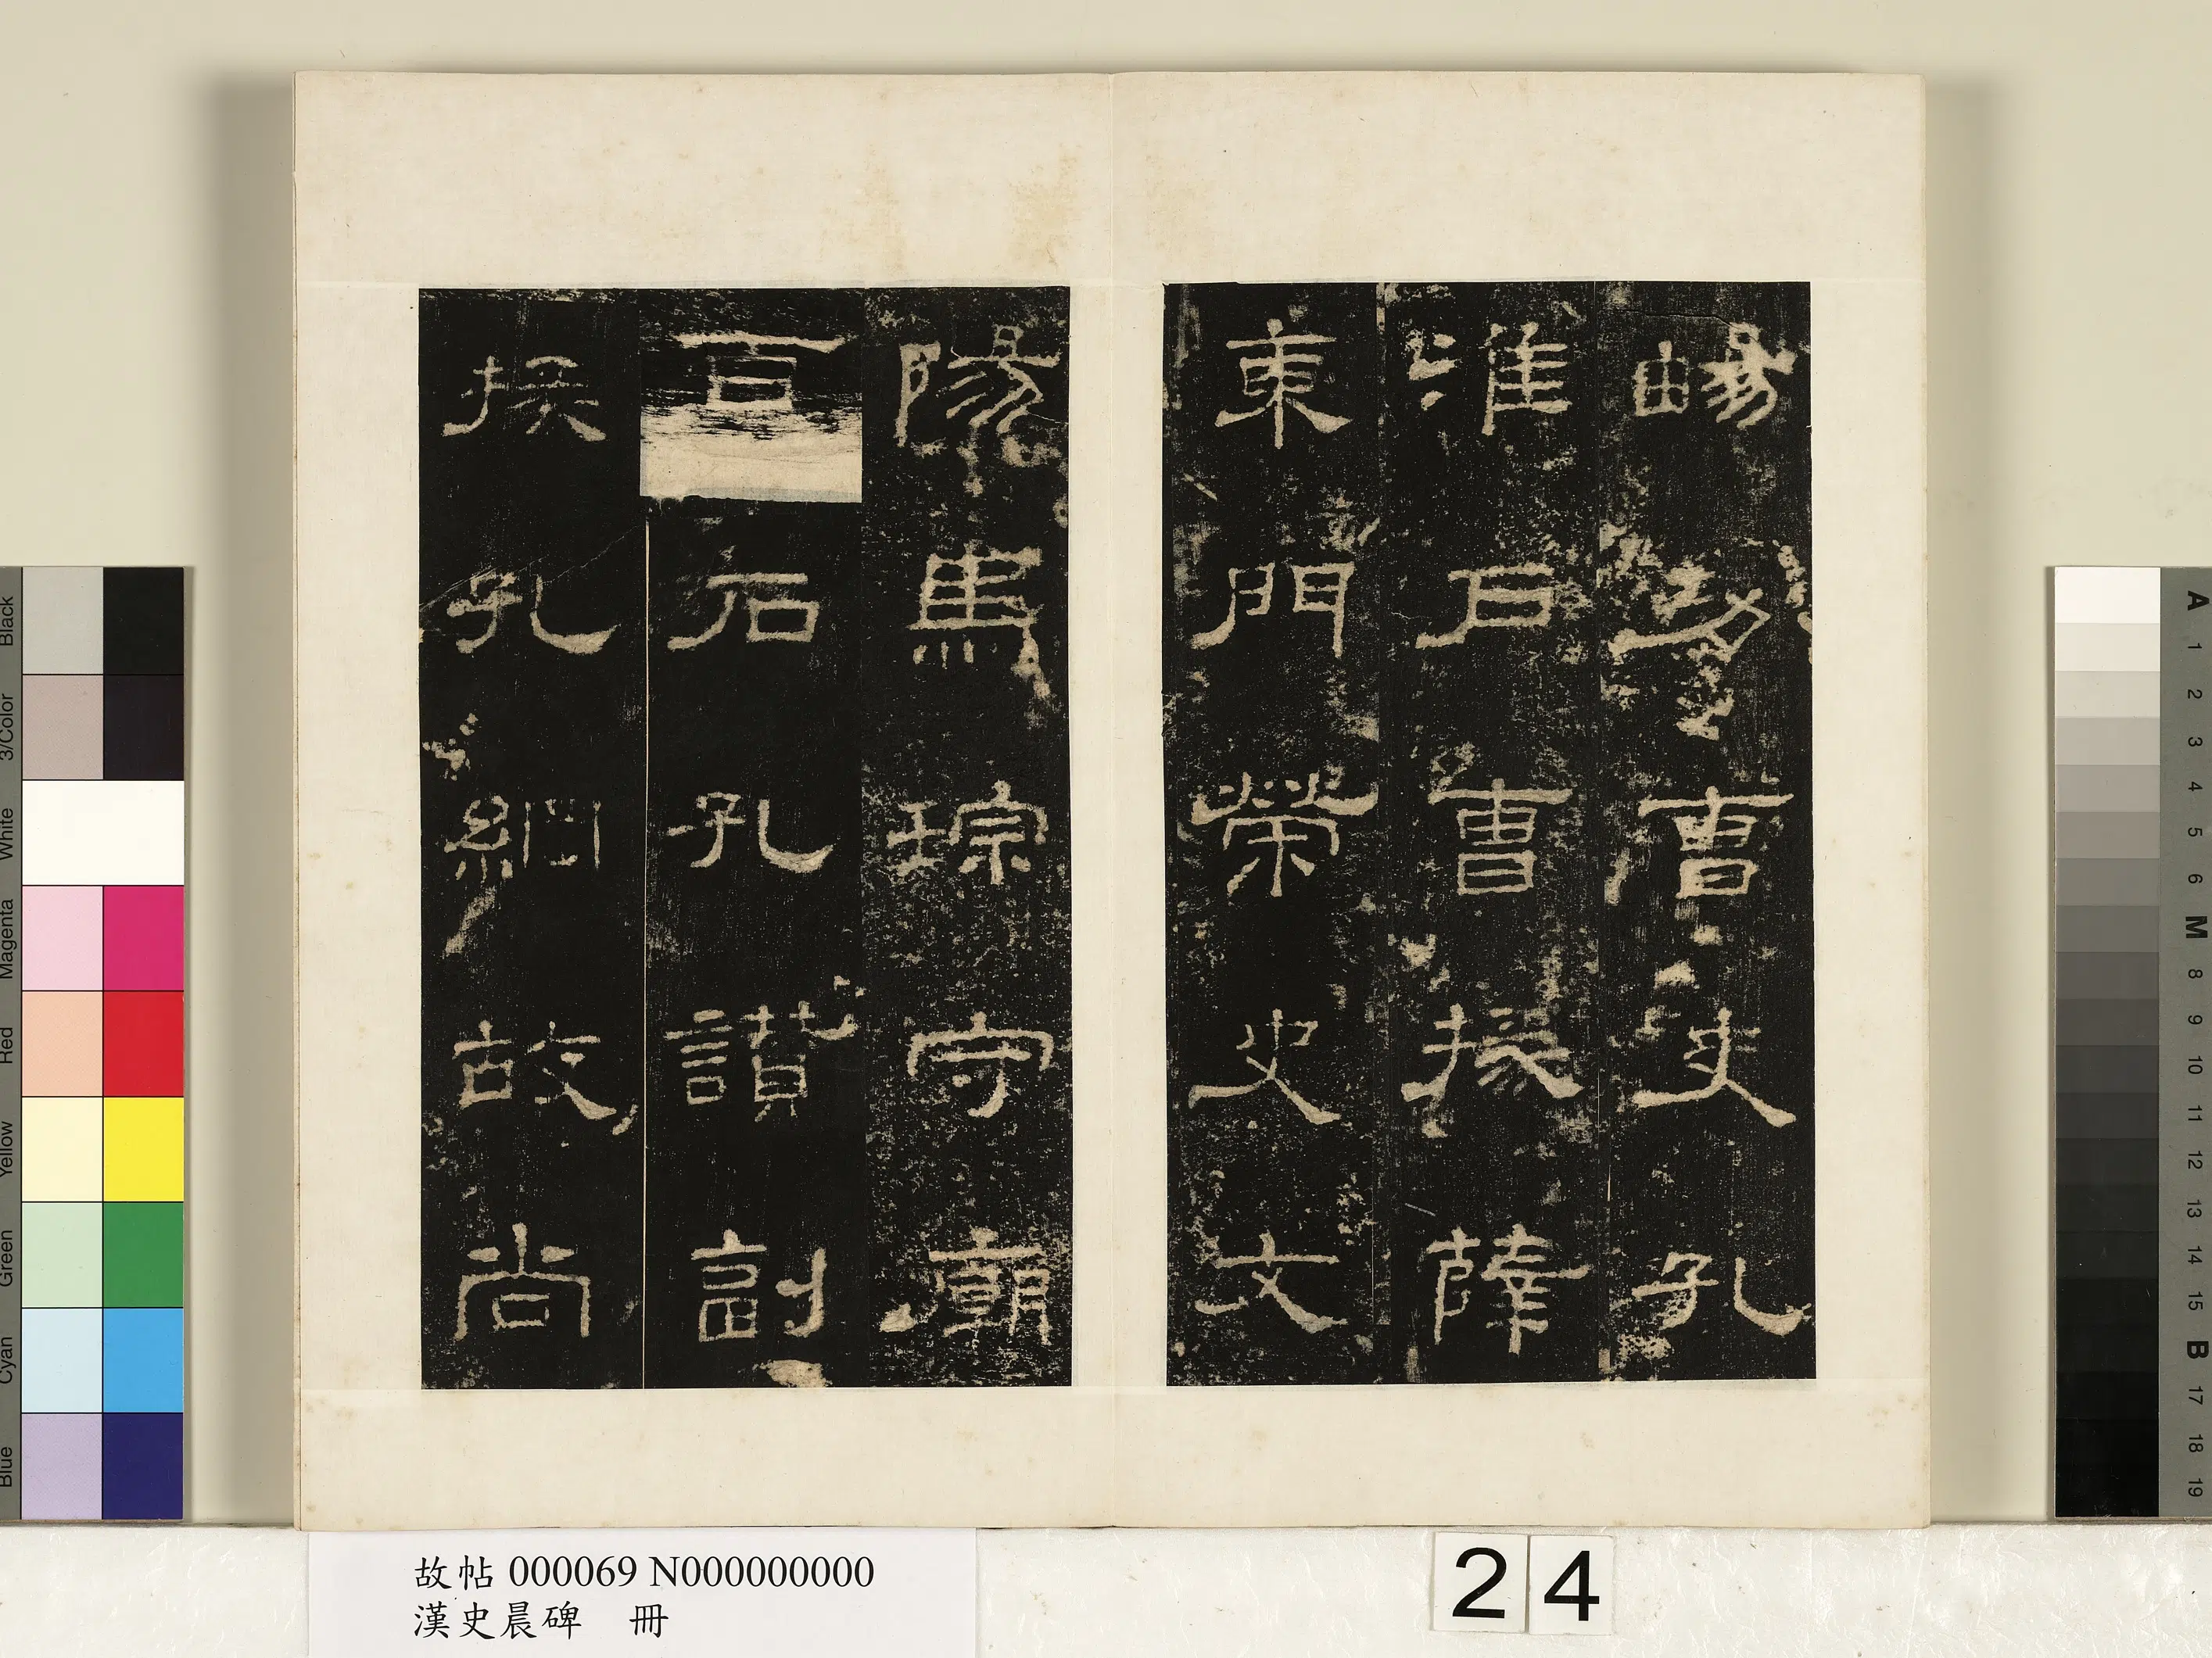 暢功曹史孔
淮戶曹掾薛
東門榮史文
陽馬琮守廟
百石孔讚副
掾孔綱故尚
故帖 000069 N000000000
漢史晨碑 冊
24
Blue Cyan Green Yellow Red Magenta White 3/Color Black
A 1 2 3 4 5 6 M 8 9 10 11 12 13 14 15 B 17 18 19